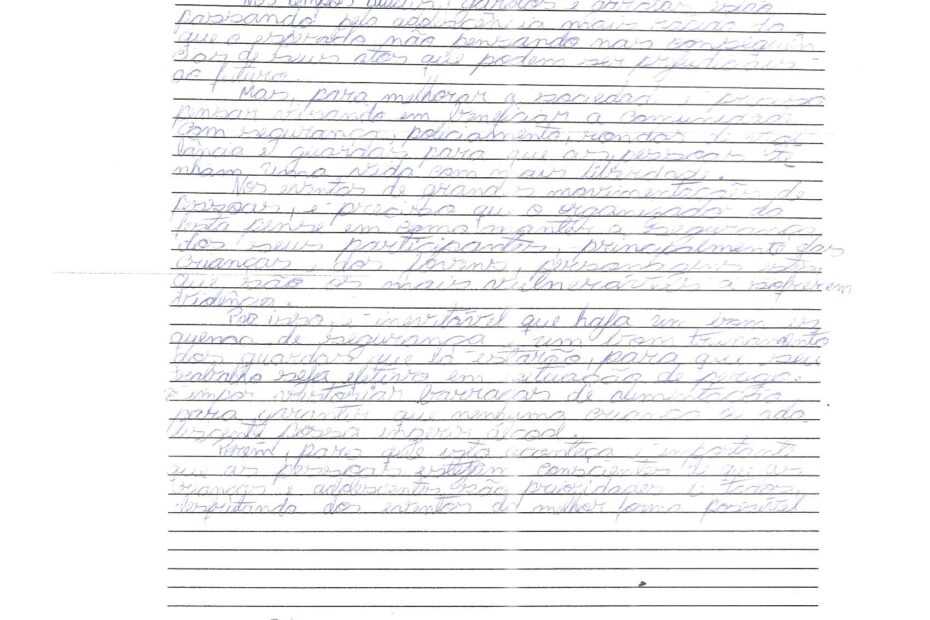 Nos tempos atuais, garotas e garotos, estão
passando pela adolescência mais rápido do
que o esperado não pensando nas consiguên
cias de seus atos que podem ser prejudiciais
ao futuro.
Mas, para melhorar a sociedade é preciso
pensar visando em beneficiar a comunidade
com segurança, policiamento, rondas de vigi-
lância e guardas para que as pessoas te
nham uma vida com mais liberdade.
Nos eventos de grandes movimentações de
pessoas, é preciso que o organizador da
festa pense em como manter a segurança
dos seus participantes, principalmente das
crianças, dos jovens,
que são os mais vulneráveis a sofrerem
violência.
Por isso, é inevitável que haja um bom es
quema de segurança e um bom treinamento
dos guardas que lá estarão, para que seu
trabalho seja efetivo em situação de perigo.
e impor vistoriar barracas de alimentação
para garantir que nenhuma criança e ado
lescente possa ingerir álcool.
Porém, para que isto aconteça é importante
que as pessoas estejam conscientes de que as
crianças e adolescentes são prioridades e todos
desfrutando dos eventos da melhor forma possível